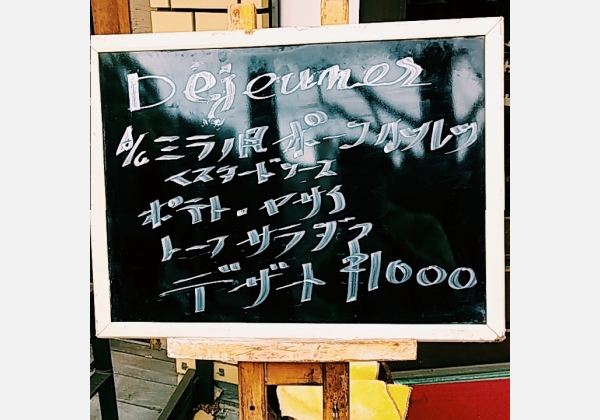 Déjeuner
A/C ミラノ風 ポークカツレツ
マスタードソース
ポテト・ヤサイ
トーフサラダ
デザート ¥1000